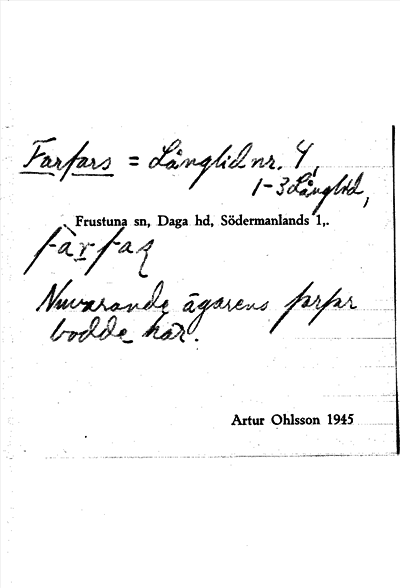 Farfars = Långlid nr. 4,
1-3 Långlid,
Frustuna sn, Daga hd, Södermanlands l,.
Nuvarande ägarens farfar
bodde här.
Artur Ohlsson 1945